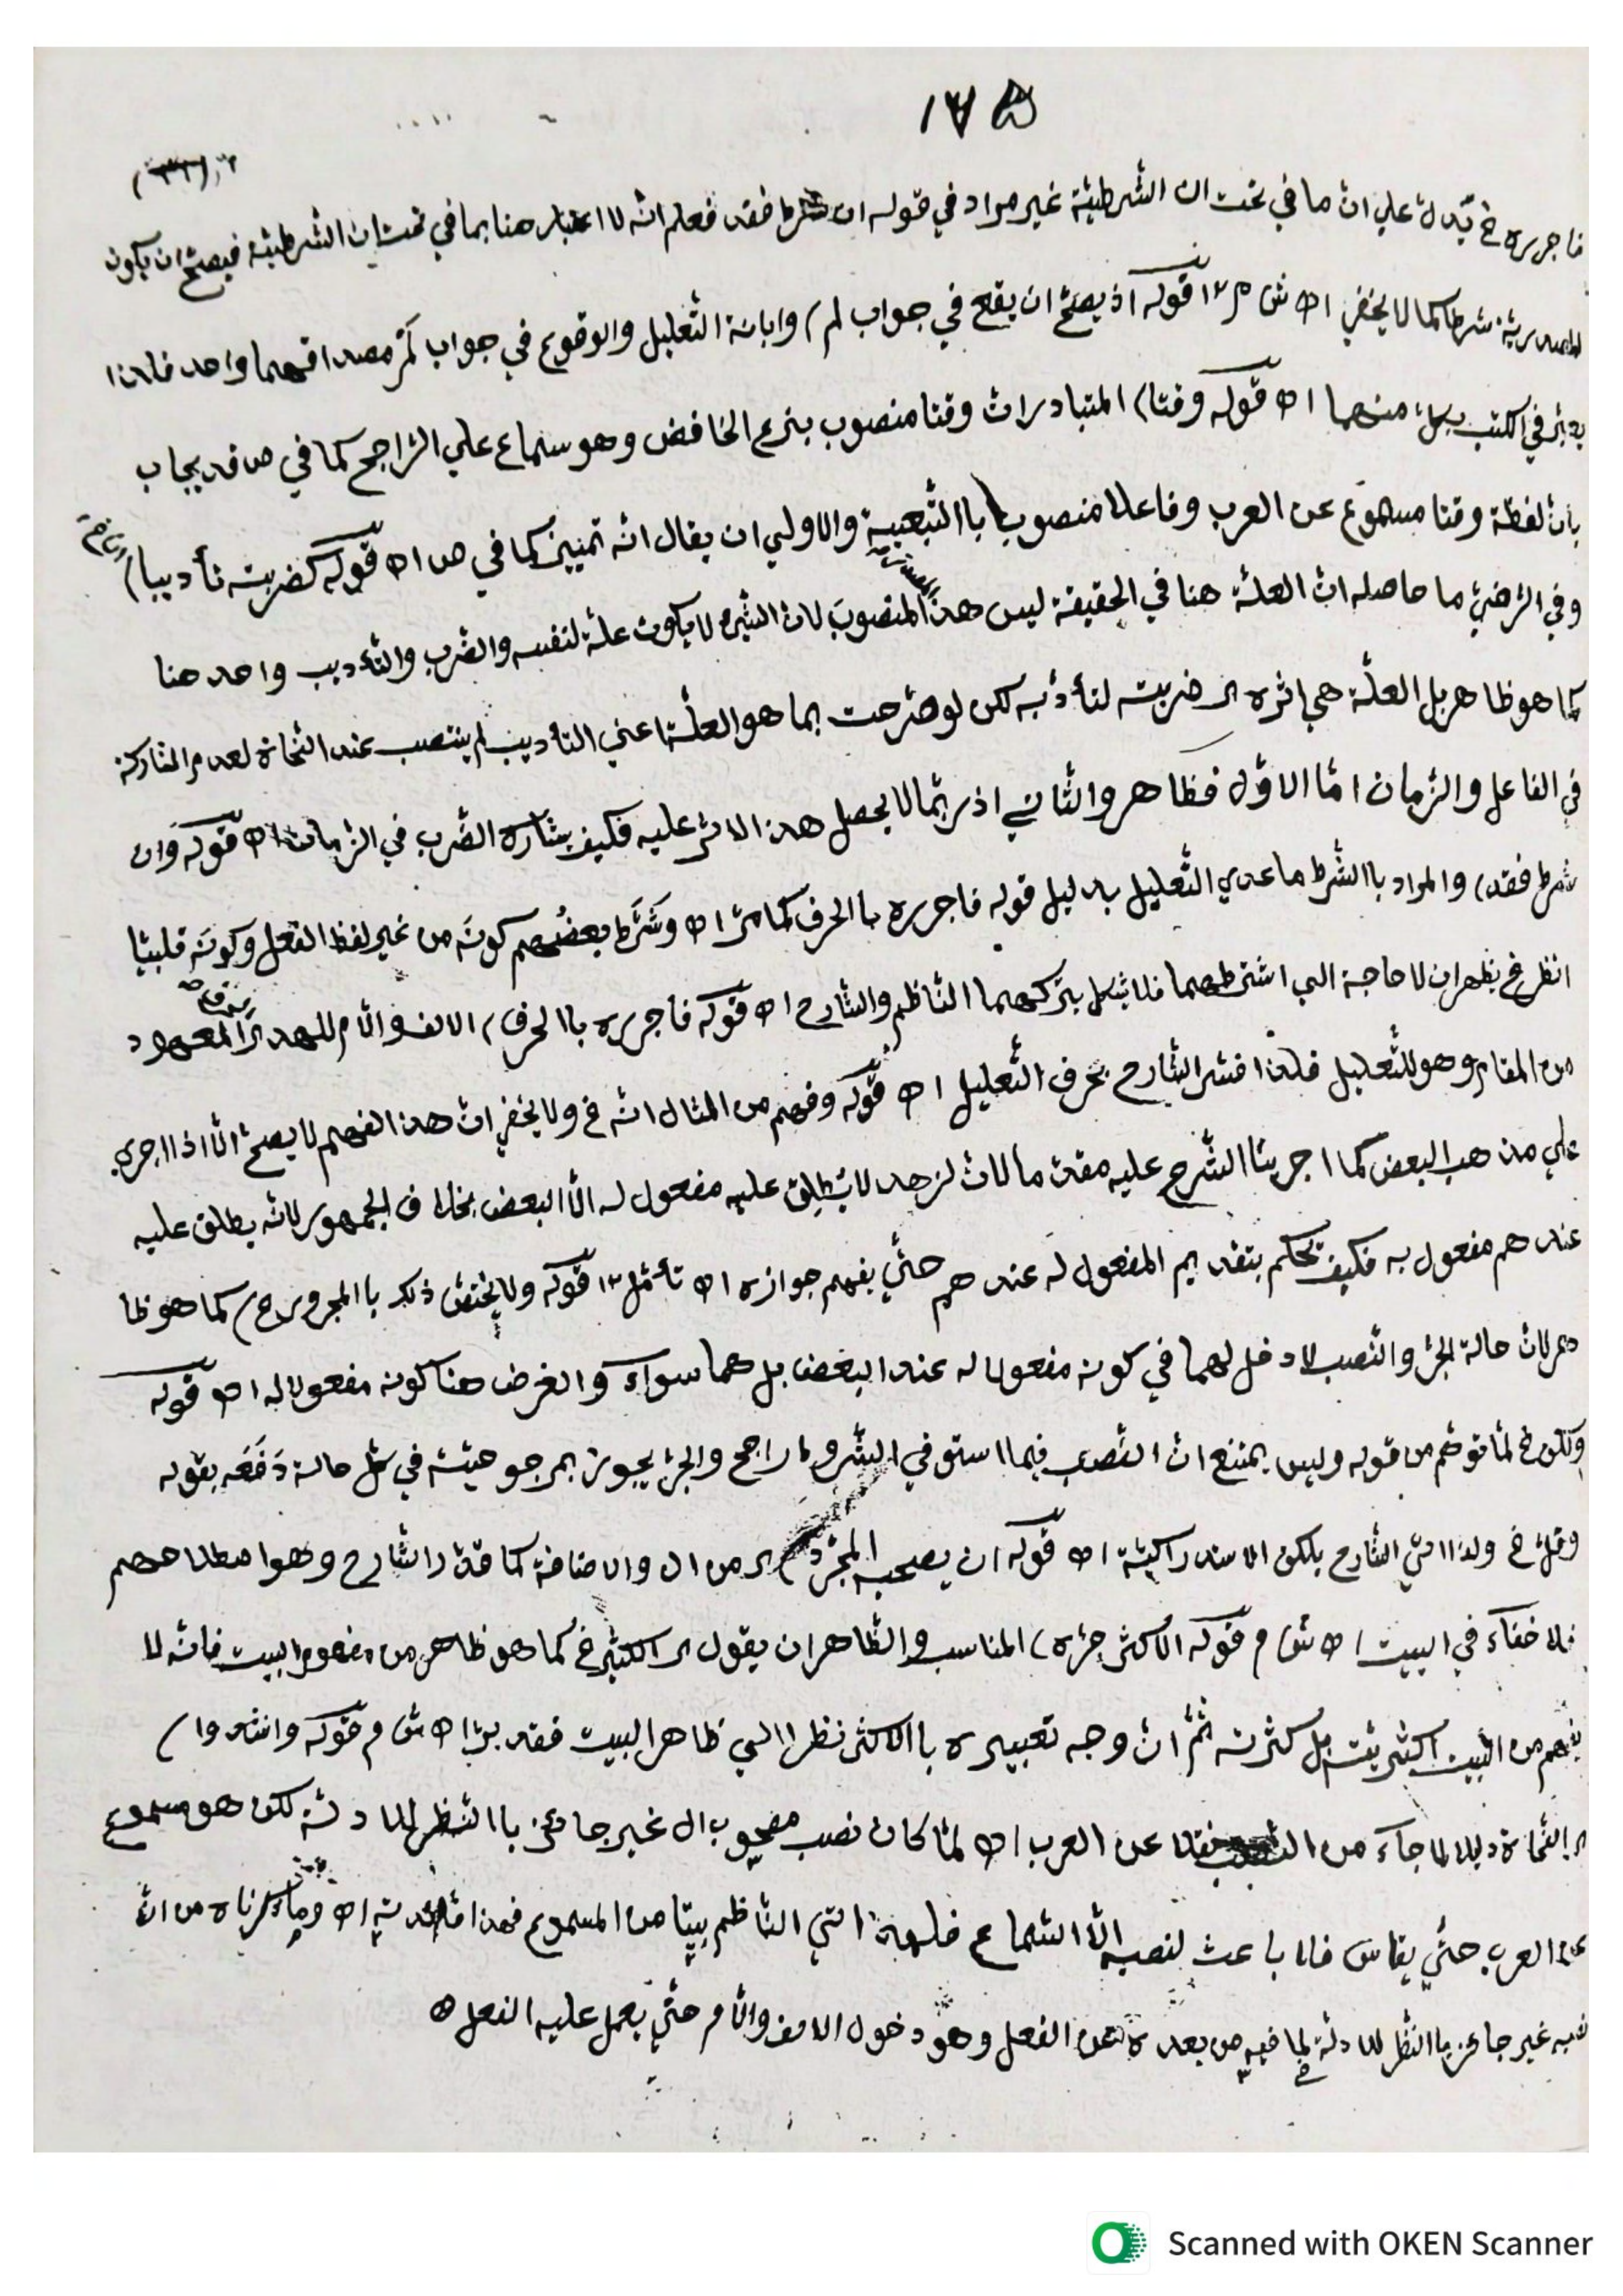 ١٧٥
فاجرره خ يدل علي ان ما في تحت ان الشرطية غير مراد في قوله ان شرط فقد فعلم انه لا اعتبار هنا بما في تحت ان الشرطية فيصح ان يكون
المصدرية شرطا كما لا يخفي اه ش م ١٢ قوله اذ يصح ان يقع في جواب لم) وابانة التعليل والوقوع في جواب لم مصداقهما واحد فلذا
في الكتب بكل منهما اه قوله وقتا) المتبادر ان وقتا منصوب بنزع الخافض وهو سماع علي الراجح كما في ص قد يجاب
بان لفظة وقتا مسموع عن العرب وفاعلا منصوب باالتبعية والاولي ان يقال انه تمييز كما في ص اه قوله كضربته تأديبا)
وفي الرضي ما حاصله ان العلة هنا في الحقيقة ليس هذا المنصوب لان الشيء لا يكون علة لنفسه والضرب والتأديب واحد هنا
كما هو ظاهر بل العلة هي اثره اي ضربته لتأدبه لكن لو صرحت بما هو العلة اعني التأديب لم ينتصب عند النحاة لعدم المشاركة
في الفاعل والزمان اما الاول فظاهر والثاني اذ ربما لا يحصل هذا الاثر عليه فكيف يشارك الضرب في الزمان اه قوله وان
شرط فقد) والمراد باالشرط ما عدي التعليل بدليل قوله فاجرره باالحرف كما مر اه وشرط بعضهم كونه من غير لفظ الفعل وكونه قلبيا
انظر خ يظهر ان لا حاجة الي اشتراطهما فلا بتركهما الناظم والشارح اه قوله فاجرره باالحرف) الالف والام للعهد اي المعهود
من المقام وهو للتعليل فلذا فسر الشارح بحرف التعليل اه قوله وفهم من المثال انه خ ولا يخفي ان هذا الفهم لا يصح الا اذا اجري
علي مذهب البعض كما اجرينا الشرح عليه مقدما لان لزهد لا يطلق عليه مفعول له الا البعض بخلاف الجمهور لانه يطلق عليه
عندهم مفعول به فكيف تحكم بتقديم المفعول له عندهم حتي يفهم جوازه اه تأمل ١٢ قوله ولا يختص ذلك باالمجرور خ) كما هو ظا
هر لان حالة الجر والنصب لا دخل لهما في كونه مفعولا له عند البعض بل هما سواء والغرض هنا كونه مفعولا له اه قوله
ولكن خ لما توهم من قوله وليس يمتنع ان النصب فيما استوفي الشروط راجح والجر يجوز بمرجوحية في كل حالة دفعه بقوله
وقل خ ولذا اتي الشارح بلكن الاستدراكية اه قوله ان يصحبه المجرد) اي من ال والاضافة كما قدر الشارح وهو اصطلاحهم
فلا خفاء في البيت اه ش م قوله الاكثر جره) المناسب والظاهر ان يقول اي الكثير خ كما هو ظاهر من مفهوم البيت فانه لا
يفهم من البيت اكثريته بل كثرته ثم ان وجه تعبيره باالاكثر نظرا الي ظاهر البيت فقد بر اه ش م قوله وانشدوا)
اي النحاة دليلا لما جاء من النصب نقلا عن العرب اه لما كان نصب مصحوب ال غير جائز باالنظر للادلة لكن هو مسموع
عن العرب حتي يقاس فلا باعث لنصبه الا السماع فلهذا اتي الناظم بيتا من المسموع فهذا اه وما ذكرناه من ان
نصبه غير جائز باالنظر للادلة لما فيه من بعده عن الفعل وهو دخول الالف والام حتي يعمل عليه الفعل اه
Scanned with OKEN Scanner